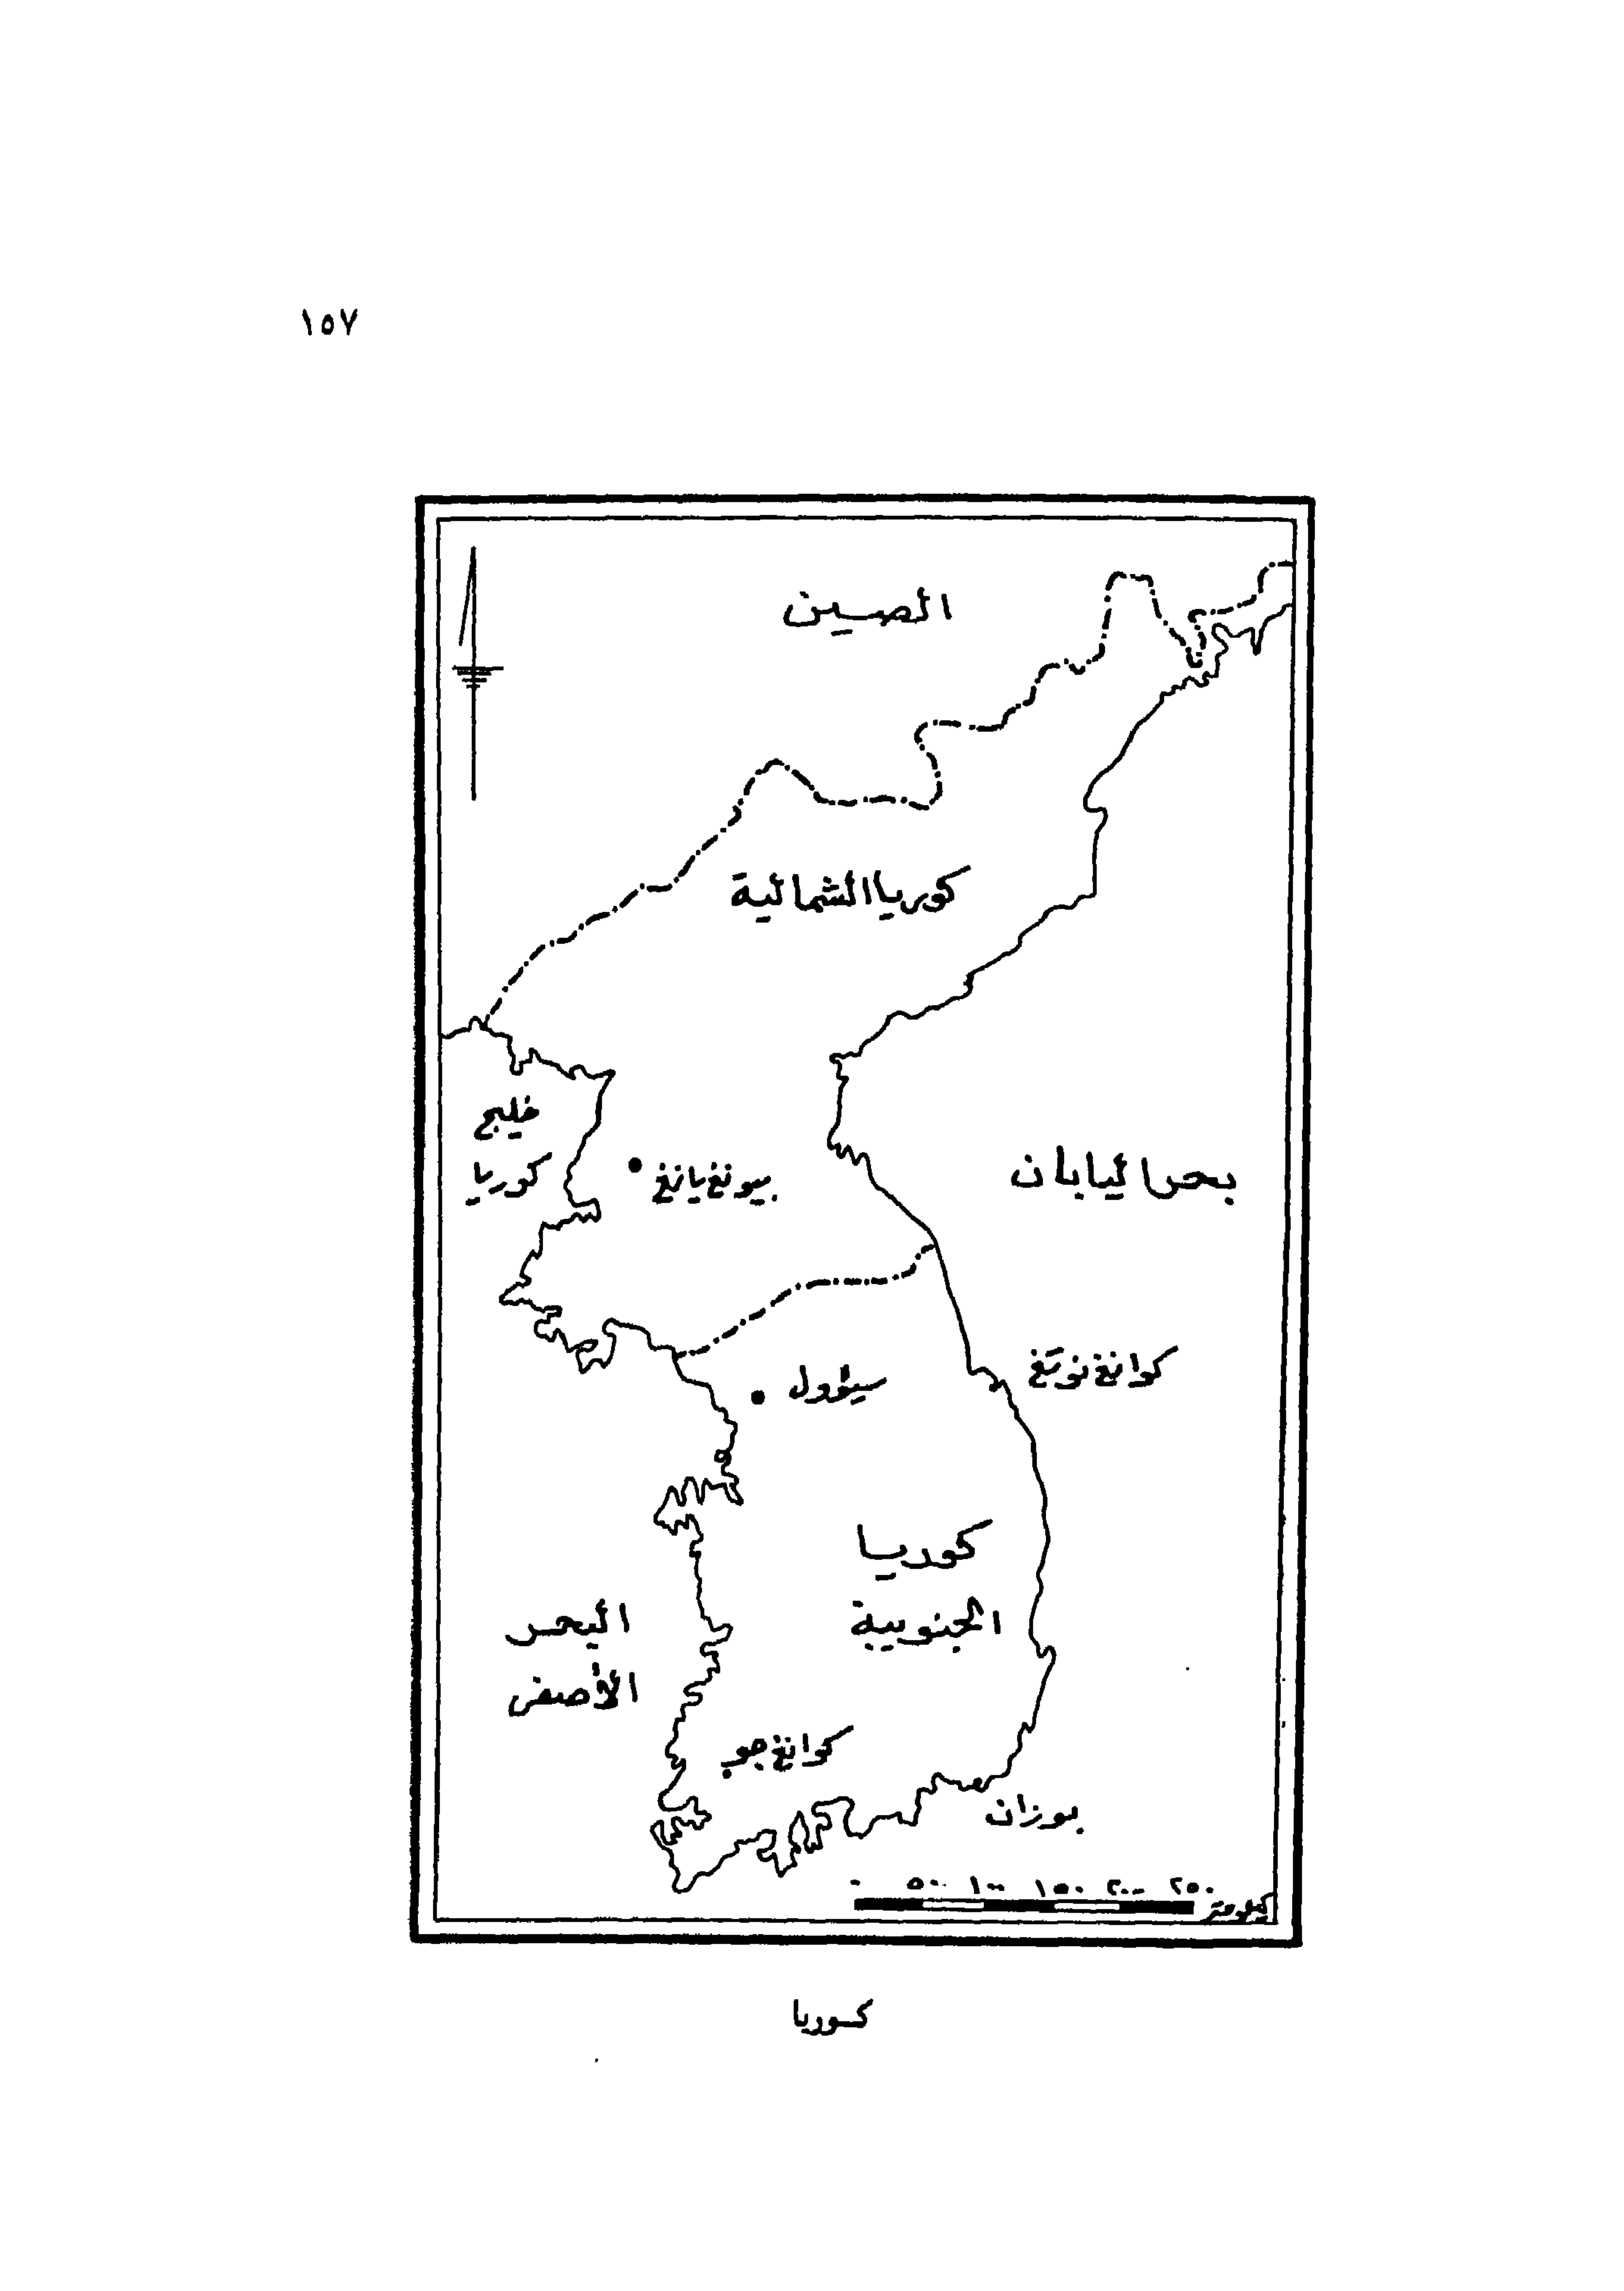 ١٥٧
الصين
كوريا الشمالية
خليج
كوريا
بيونغ يانغ
بحر اليابان
سيئوول
كوانغ نونغ
كوريا
الجنوبية
البحر
الأصفر
كوانغ جو
بوزان
٠ ٥٠ ١٠٠ ١٥٠ ٢٠٠ ٢٥٠
كيلومتر
كوريا